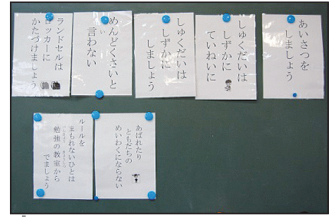 あいさつを
しましょう
しゅくだいは
しずかに
ていねいに
しゅくだいは
しずかに
しましょう
めんどくさいと
言わない
ランドセルは
ロッカーに
かたづけましょう
あばれたり
ともだちの
めいわくにならない
ルールを
まもれないひとは
勉強の教室から
でましょう